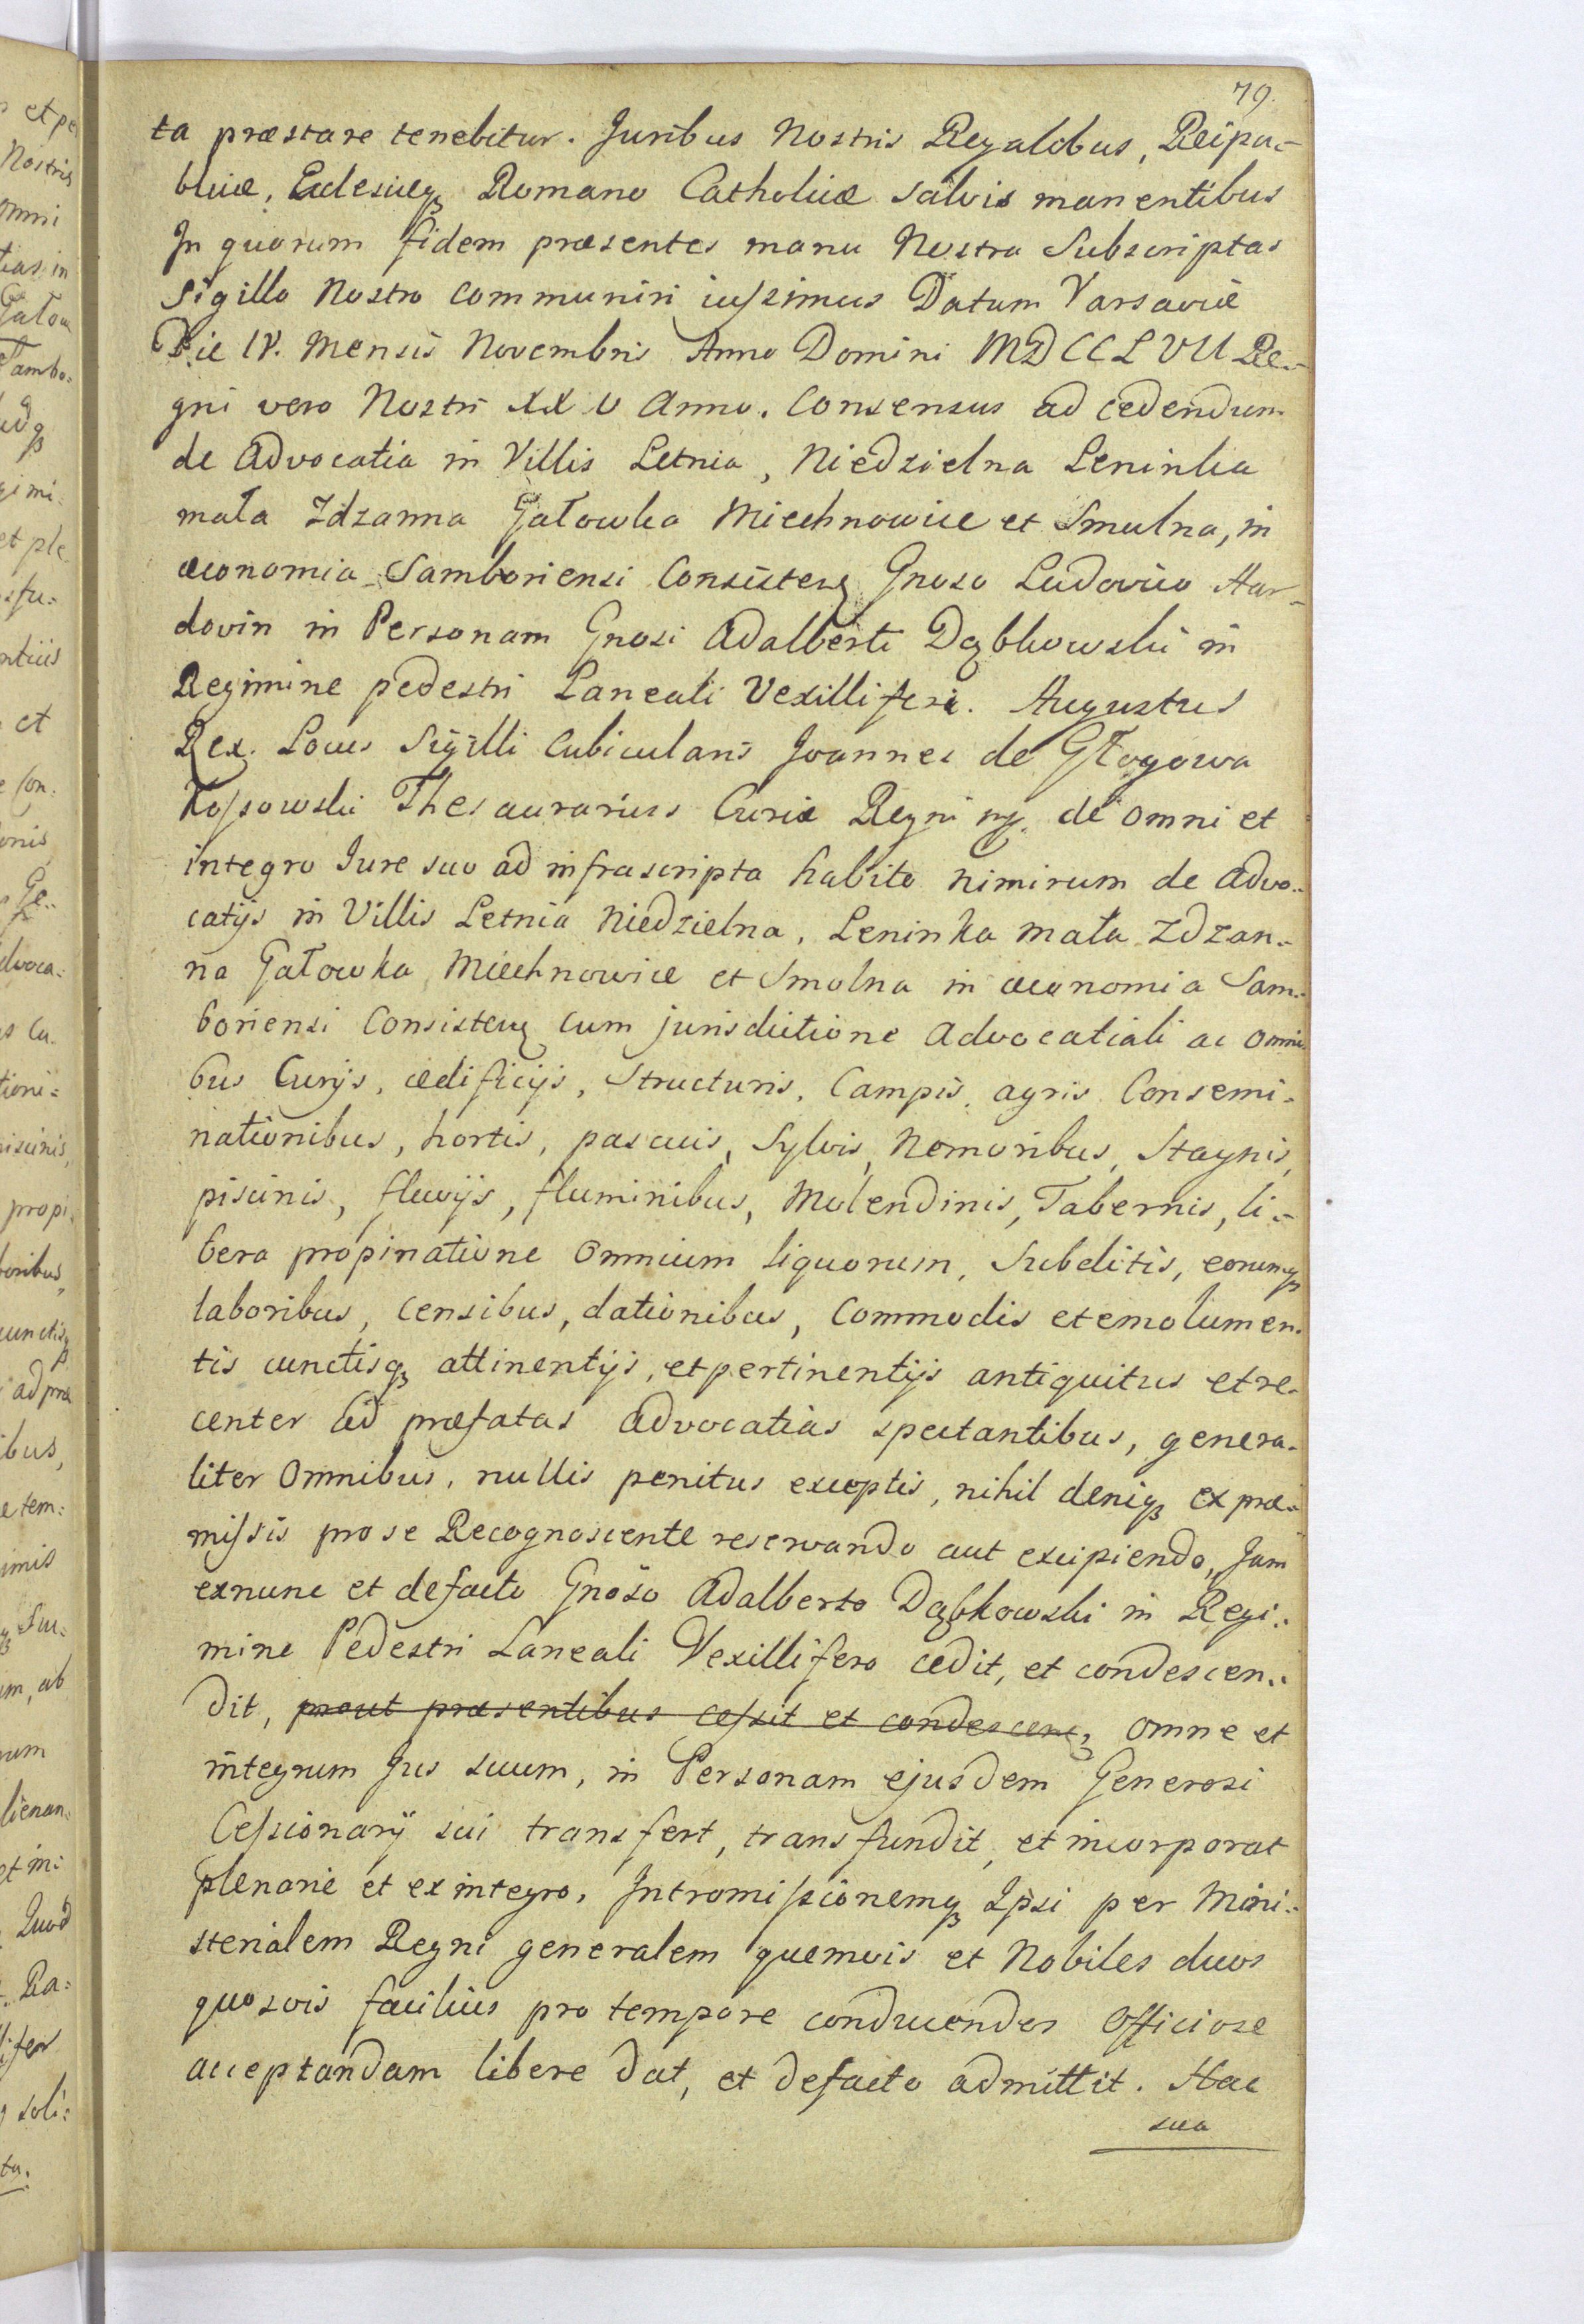 79.
ta præstare tenebitur. Juribus Nostris Regalibus, Reipu-
blicæ, Eclesiæq3 Romano Catholicæ salvis manentibus
In quorum fidem præsentes manu Nostra Subscriptas
Sigillo Nostro communiri iussimus Datum Varsaviæ
Die IV. Mensis Novembris Anno Domini MDCCLVII Re-
gni vero Nostri XXV Anno. Consensus ad cedendum
de Advocatia in Villis Letnia, Niedzielna Leninka
mała Zdzanna Gałowka Miechnowice et Smulna, in
œconomia Samboriensi Consisten3 Gnoso Ludovico Har-
dovin in Personam Gnosi Adalberti Dąbkowski in
Regimine pedestri Laneali Vexilliferi. Augustus
Rex. Locus Sigilli Cubicularis Joannes de Głogowa
Kossowski Thesaurarius Curiæ Regni de omni et
integro Jure suo ad infrascripta habito nimirum de Advo-
catijs in Villis Letnia Niedzielna, Leninka mała Zdzan-
na Gałowka Miechnowice et Smolna in œconomia Sam-
boriensi Consisten3 cum jurisdictione Advocatiali ac omni-
bus Curijs, ædificijs, Structuris, Campis, agris Consemi-
nationibus, hortis, pascuis, Sylvis, Nemoribus, Stagnis,
piscinis, fluvijs, fluminibus, Molendinis, Tabernis, li-
bera propinatione omnium liquorum, Subditis, eorumq3
laboribus, censibus, dationibus, Commodis et emolumen-
tis cunctisq3 attinentijs, et pertinentijs antiquitus et re-
center ad præfatas advocatias spectantibus, genera-
liter omnibus, nullis penitus exceptis, nihil deniq3 ex præ-
missis pro se Recognoscente reservando aut excipiendo, Jam
exnunc et defacto Gnoso Adalberto Dąbkowski in Regi-
mine Pedestri Laneali Vexillifero cedit, et condescen-
dit, prout præsentibus cessit et condescen3, omne et
integrum Jus suum, in Personam ejusdem Generosi
Cessionarij sui transfert, transfundit, et incorporat
plenarie et ex integro, Intromissionemq3 Ipsi per Mini-
sterialem Regni generalem quemvis et Nobiles duos
quosvis facilius pro tempore conducendos Officiose
acceptandam libere dat, et defacto admittit. Hac
sua